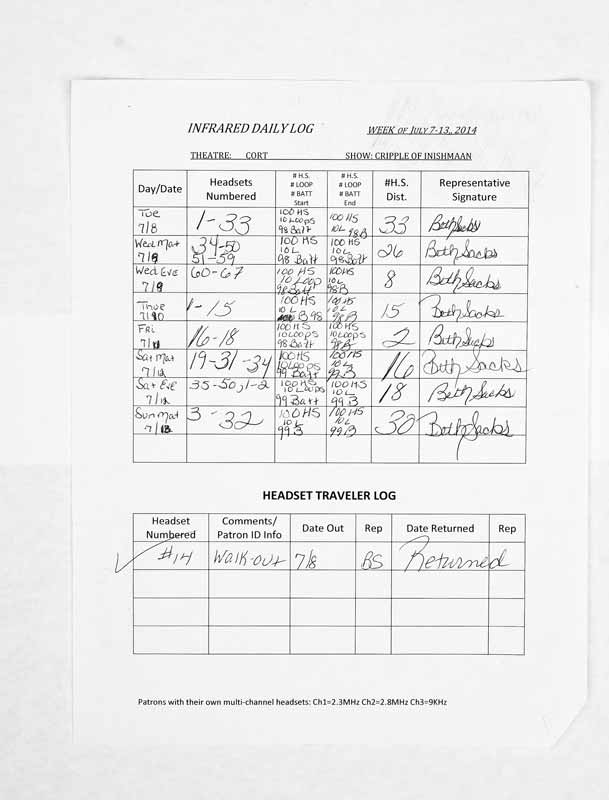 INFRARED DAILY LOG WEEK OF JULY 7-13, 2014
THEATRE: CORT SHOW: CRIPPLE OF INISHMAAN
Day/Date Headsets Numbered # H.S. # LOOP # BATT Start # H.S. # LOOP # BATT End #H.S. Dist. Representative Signature
Tue 7/8 1-33 100 HS 10 Loops 98 Batt 100 HS 10L 98B 33 Beth Sacks
Wed Mat 7/9 34-50 51-59 100 HS 10L 98 Batt 100 HS 10L 98 Batt 26 Beth Sacks
Wed Eve 7/9 60-67 100 HS 10 Loop 98 Batt 100HS 10L 98B 8 Beth Sacks
Thur 7/10 1-15 100 HS 10L B 98 100 HS 10L 98B 15 Beth Sacks
Fri 7/11 16-18 100HS 10 Loops 98 Batt 100 HS 10 Loops 98B 2 Beth Sacks
Sat Mat 7/12 19-31-34 100HS 10 Loops 99 Batt 100 HS 10L 99B 16 Beth Sacks
Sat Eve 7/12 35-50, 1-2 100 HS 10 Loops 99 Batt 100 HS 10L 99B 18 Beth Sacks
Sun Mat 7/13 3-32 100HS 10L 99B 100 HS 10L 99B 30 Beth Sacks
HEADSET TRAVELER LOG
Headset Numbered Comments/ Patron ID Info Date Out Rep Date Returned Rep
✓ #14 Walk-out 7/8 BS Returned
Patrons with their own multi-channel headsets: Ch1=2.3MHz Ch2=2.8MHz Ch3=9KHz